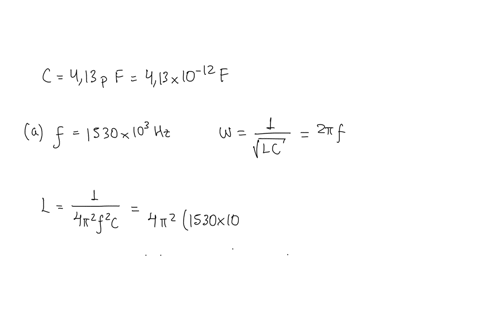 C = 4,13 p F = 4,13 × 10⁻¹² F
(a) f = 1530 × 10³ Hz    W = 1/√LC = 2πf
L = 1/4π²f²C = 4π² (1530×10